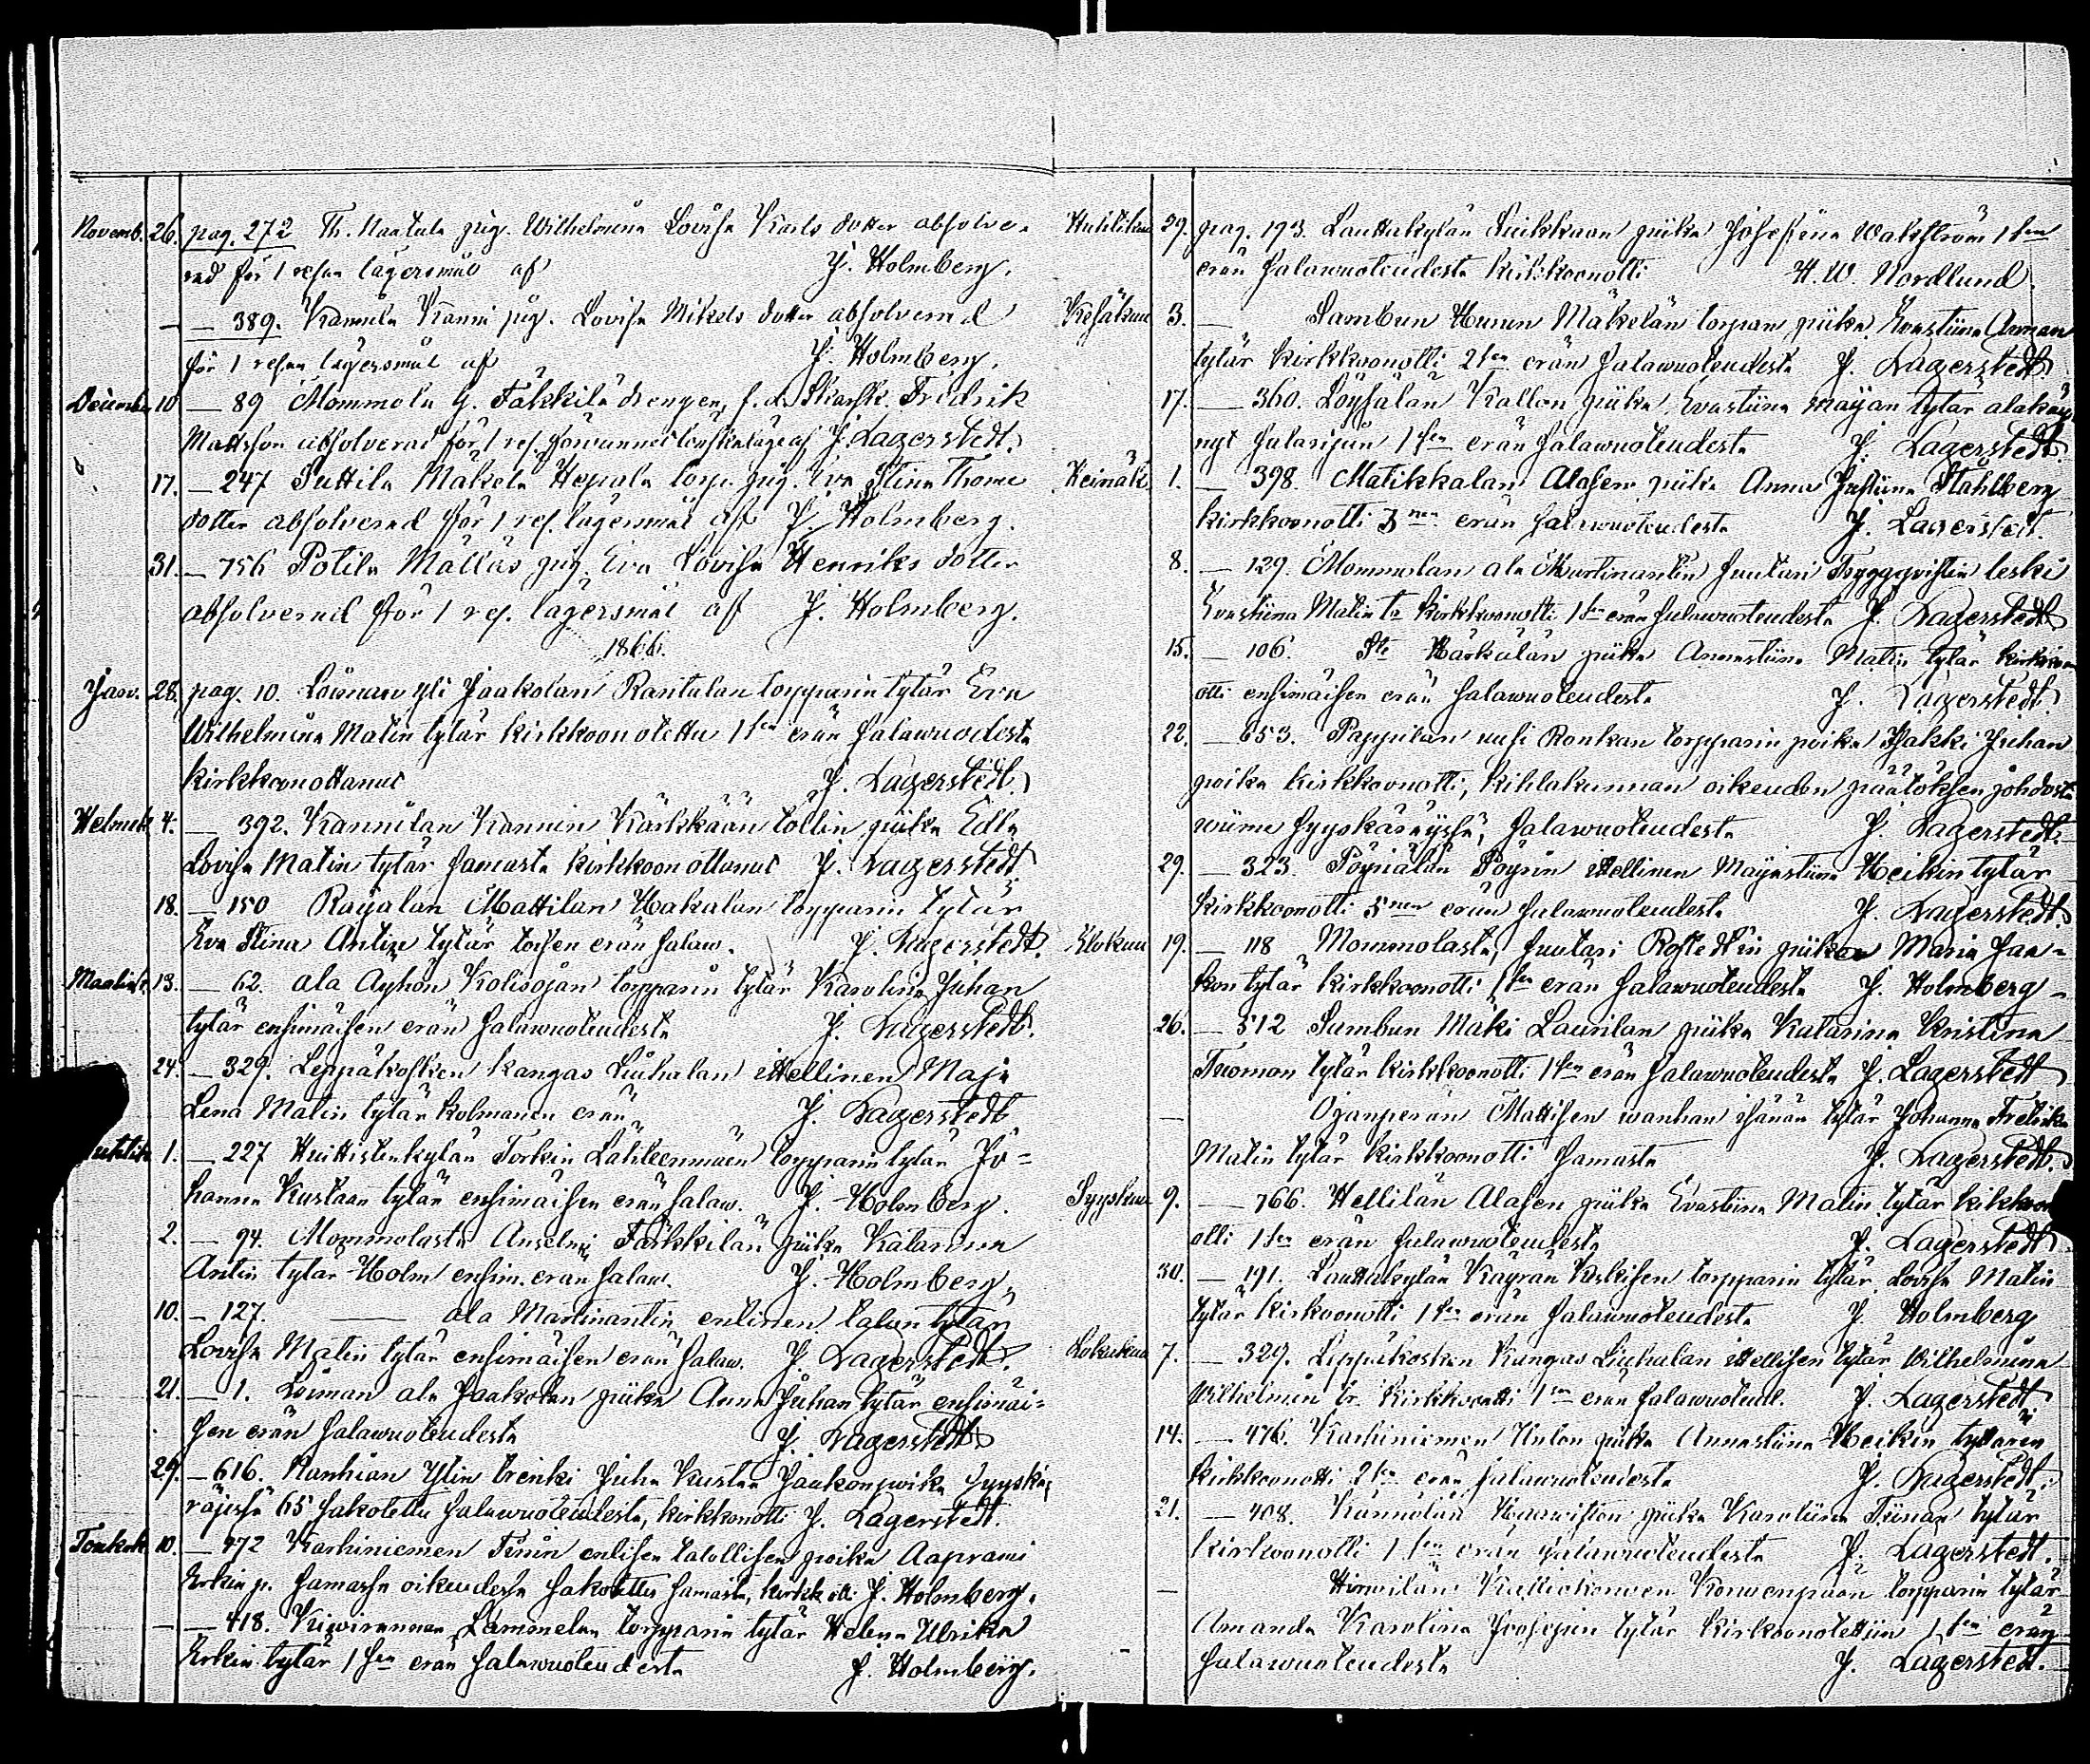 Novemb. 26. pag. 272 Th. Naatula pig. Wilhelmina Lovisa Karls dotter absolve-
rad för 1 resan lägersmål af J. Holmberg.
— — 389. Kannila Kanni pig. Lovisa Mikels dotter absolverad
för 1 resan lägersmål af J. Holmberg.
Decemb. 10 — 89 Mommola G. Fäkkilä drengen, f.d. Fredrik
Mattsson absolverad för 1 res. J. Lagerstedt.
17. — 247 Suttila Mäkelä Heposla torp. pig. Eva Stina Thome
dotter absolverad för 1 res. lägersmål af J. Holmberg.
31. — 756 Potila Mällas pig. Eva Lovisa Henriks dotter
absolverad för 1 res. lägersmål af J. Holmberg.
1866.
Janv. 28. pag. 10. Loiman yli Jaakolan Rantalan torpparin tytär Eva
Wilhelmina Matin tytär kirkkoon otettu 1sen erän salawuodesta
kirkkoonottanut J. Lagerstedt.
Helmik. 4. — 392. Kannilan Kannin Kärkkään töllin piika Edla
Lovisa Matin tytär samasta kirkkoon ottanut J. Lagerstedt.
18. — 150 Raijalan Mattilan Hakalan torpparin tytär
Eva Stina Antin tytär toisen erän salaw. J. Lagerstedt.
Maalisk. 13. — 62. ala Äyhön Kolisojan torpparin tytär Karolina Juhan
tytär ensimäisen erän salawuoteudesta J. Lagerstedt.
24. — 329. Leppäkosken kangas Liuhalan itellinen Maja
Lena Matin tytär kolmannen erän J. Lagerstedt
Huhtik. 1. — 227 Huittistenkylän Torkin Lähteenmäen torpparin tytär Jo-
hanna Kustaan tytär ensimäisen erän salaw. J. Holmberg.
2. — 94. Mommolasta Anselmi Färkkilän piika Katarina
Antin tytär Holm ensim. erän salaw. J. Holmberg.
10. — 127. — ala Martinantin entinen talon tytär
Lovisa Matin tytär ensimäisen erän salaw. J. Lagerstedt.
21. — 1. Loiman ala Jaakolan piika Anna Juhan tytär ensimäi-
sen erän salawuoteudesta J. Lagerstedt
29. — 616. Ranhian Ylin trenki Juha Kustaa Jaakon poika syyskä-
räjissä 65 sakotettu salawuoteudesta, kirkkoonotti J. Lagerstedt.
Toukok. 10. — 472 Karhiniemen entisen talollisen poika Aaprami
Erkin p. samassa oikeudessa sakotettu samasta, kirkk. otti J. Holmberg.
— — 418. Kiwirannan Lammelan torpparin tytär Helena Ulrika
Erkin tytär 1sen erän salawuoteudesta J. Holmberg.
Huhtikuu 29. pag. 193. Lauttakylän Liikkaan piika Josefiina Walström 1sen
erän salawuoteudesta kirkkoonotti H. W. Nordlund.
Kesäkuu 3. — Sambun Hurun Mäkelän torpan piika Evastiina
tytär kirkkoonotti 2sen erän salawuoteudesta J. Lagerstedt
17. — 360. Löysälän Kallon piika Evastiina Maijan tytär
1sen erän salawuoteudesta J. Lagerstedt.
Heinäk. 1. — 398. Matikkalan Alasen piika Anna Justiina Ståhlberg
kirkkoonotti 3nen erän salawuoteudesta J. Lagerstedt.
8. — 129. Mommolan ala Martinantin suutari Tryggqvistin leski
Evastiina Matin tr kirkkoonotti 1sen erän salawuoteudesta J. Lagerstedt
15. — 106. Ste Härkälän piika Annastiina Matin tytär kirkkoon
otti ensimäisen erän salawuoteudesta J. Lagerstedt.
22. — 653. Pappilan uusi Ronkan torpparin poika Iisakki Juhan
poika kirkkoonotti, kihlakunnan oikeuden päätöksen johdosta
wiime syyskäräjissä, salawuoteudesta J. Lagerstedt.
29. — 323. Pöyriälän Pöyrin itellinen Maijastiina Heikin tytär
kirkkoonotti 5nen erän salawuoteudesta J. Lagerstedt.
Elokuu 19. — 118 Mommolasta, suutari Rostedtin piikan Maria Jaa-
kon tytär kirkkoonotti 1sen erän salawuoteudesta J. Holmberg
26. — 512 Sambun Mäki Laurilan piika Katarina Kristina
Tuomon tytär kirkkoonotti 1sen erän salawuoteudesta J. Lagerstedt
— Ojanperän Mattisen wanhan isännän tytär Johanna Fredrika
Matin tytär kirkkoonotti samasta J. Lagerstedt.
Syyskuu 9. — 766. Hellilän Alasen piika Evastiina Matin tytär kirkkoon
otti 1sen erän salawuoteudesta J. Lagerstedt
30. — 191. Lauttakylän Käyrän Keskisen torpparin tytär Lovisa Matin
tytär kirkoonotti 1sen erän salawuoteudesta J. Holmberg
Lokakuu 7. — 329. Leppäkosken Kangas Liuhalan itellisen tytär Wilhelmiina
Wilhelmin tr. kirkkoonotti 1sen erän salawuoteud. J. Lagerstedt.
14. — 476. Karhiniemen Anton piika Annastiina Heikin tyttären
kirkkoonotti 2sen erän salawuoteudesta J. Lagerstedt.
21. — 408. Kännölän piika Karoliina Tiinan tytär
kirkoonotti 1sen erän salawuoteudesta J. Lagerstedt.
— Hirwilän Kalliokonwen Korwenpään torpparin tytär
Amanda Karolina Joosepin tytär kirkoonotettiin 1sen erän
salawuoteudesta J. Lagerstedt.